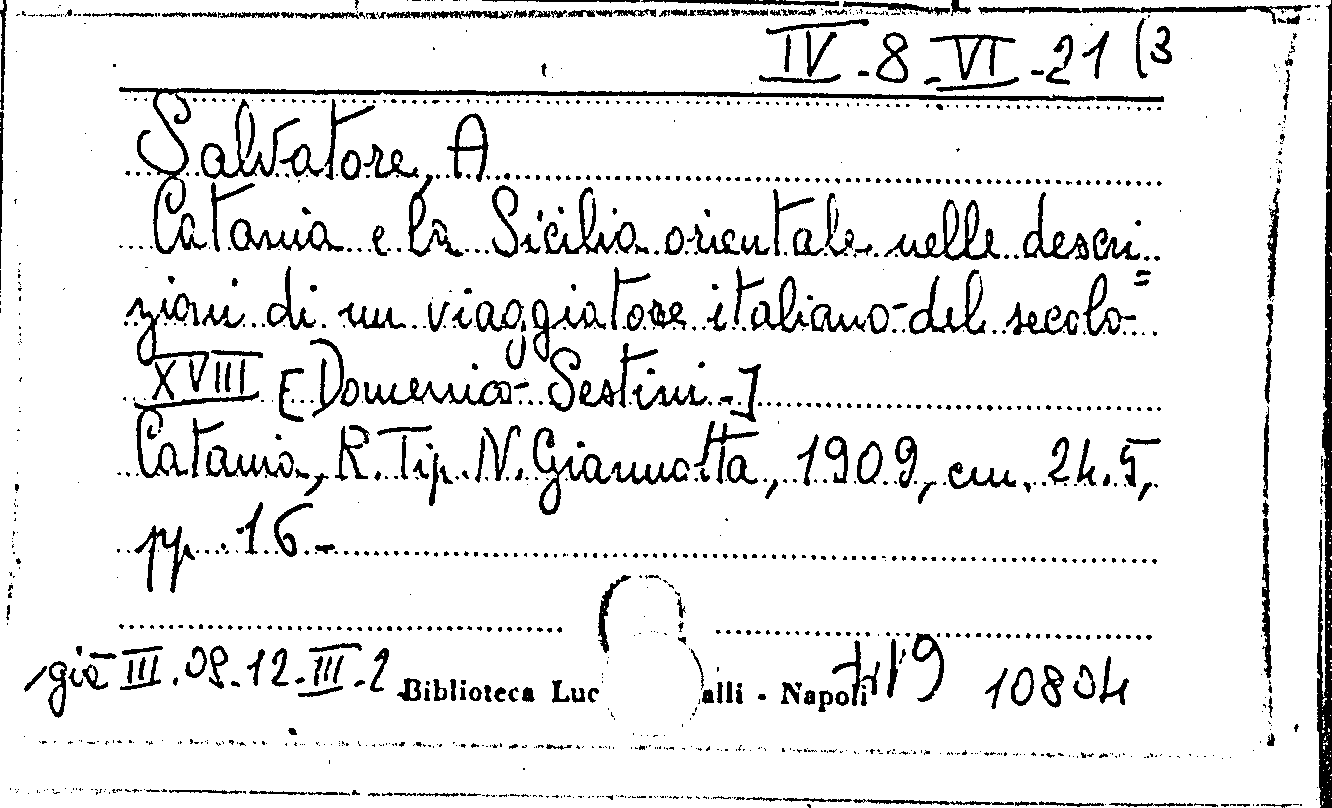 IV-8-VI-21 (3
Salvatore, A.
Catania e la Sicilia orientale nelle descri=
zioni di un viaggiatore italiano del secolo
XVIII [Domenico Sestini-]
Catania, R. Tip. N. Giannotta, 1909, cm. 24.5,
pp. 16-
già III.08.12.III.2 Biblioteca Luc alli - Napoli 10804